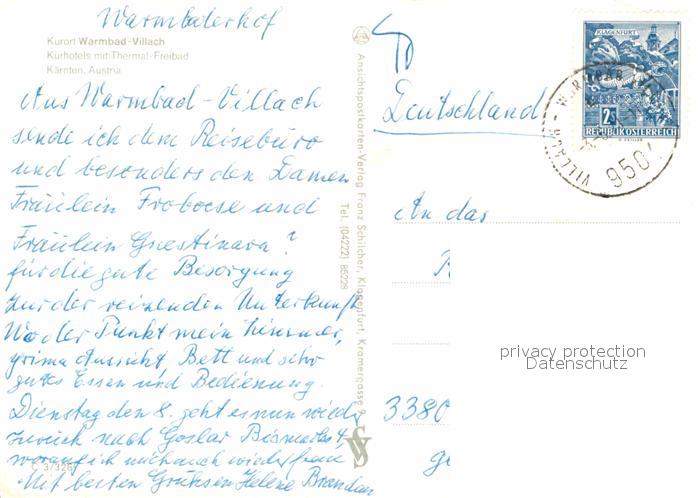 Warmbaderhof
Kurort Warmbad-Villach
Kurhotels mit Thermal-Freibad
Kärnten, Austria
Aus Warmbad-Villach
sende ich dem Reisebüro
und besonders den Damen
Fräulein Froboese und
Fräulein ?
für die gute Besorgung
der reizenden Unterkunft
Wo der Punkt mein Zimmer,
prima Aussicht, Bett und sehr
gutes Essen und Bedienung.
Dienstag den 8. geht es nun wieder
zurück nach Goslar Bismarckstr 4
worauf ich mich auch wieder freue
Mit besten Grüßen Helene
C 3/326
Ansichtspostkarten-Verlag Franz Schilcher, Klagenfurt, Kramergasse 9
Tel. (04222) 85228
KLAGENFURT
2 S
REPUBLIK ÖSTERREICH
VILLACH - WARMBAD
9504
Deutschland
An das
R
3380
privacy protection
Datenschutz